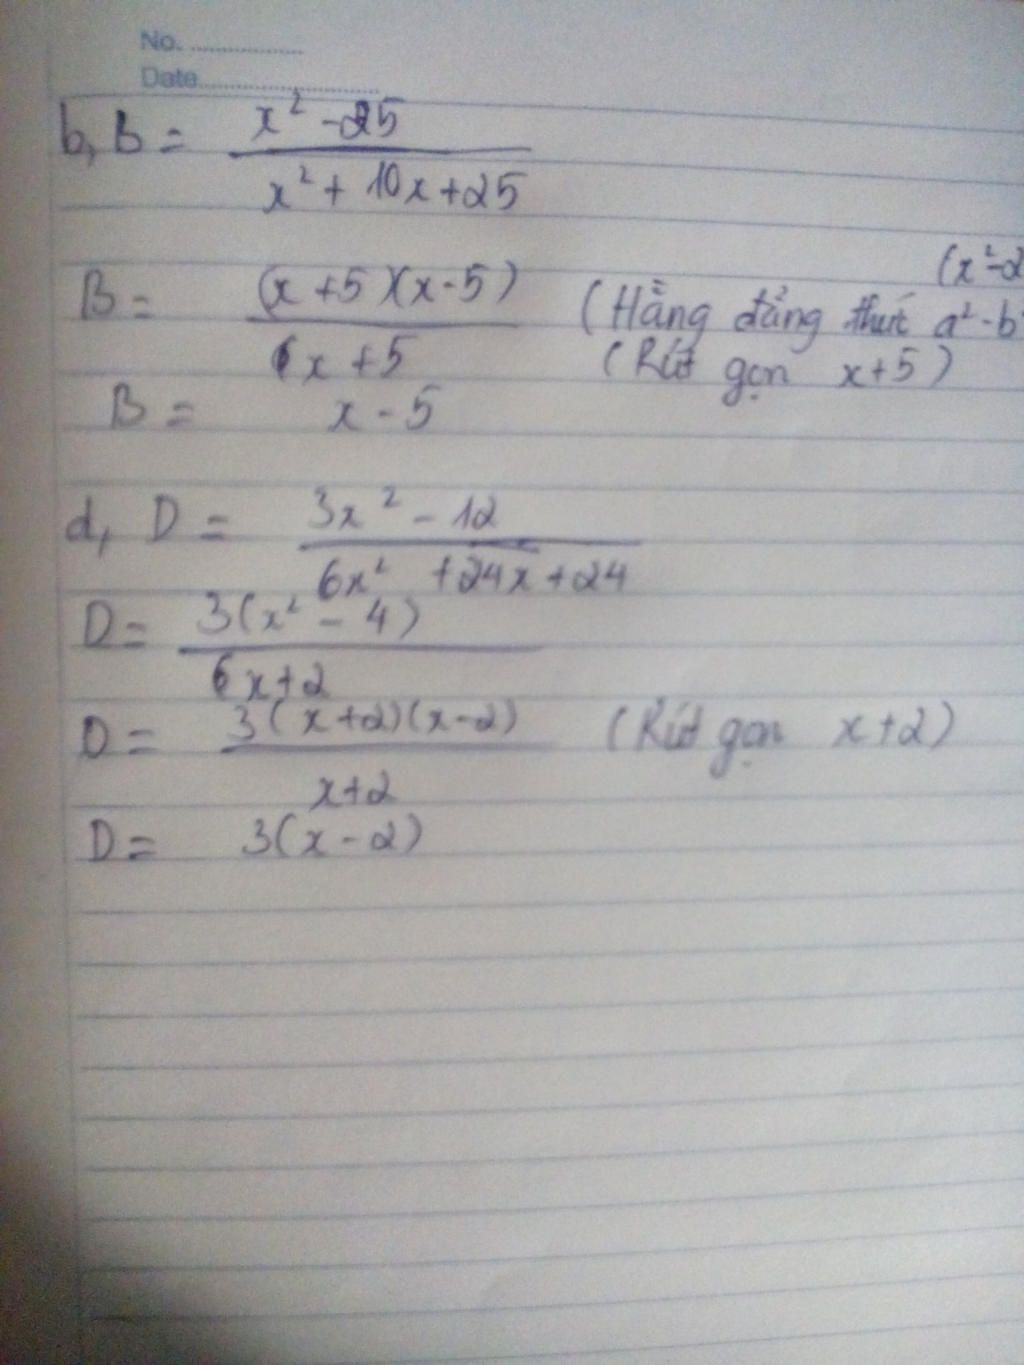 No. ....................
Date.................................
b, B = x² - 25 / x² + 10x + 25
(x² - 2
B = (x + 5)(x - 5) / x + 5 (Hằng đẳng thức a² - b²
(Rút gọn x + 5)
B = x - 5
d, D = 3x² - 12 / 6x² + 24x + 24
D = 3(x² - 4) / 6x + 2
D = 3(x + 2)(x - 2) / x + 2 (Rút gọn x + 2)
D = 3(x - 2)